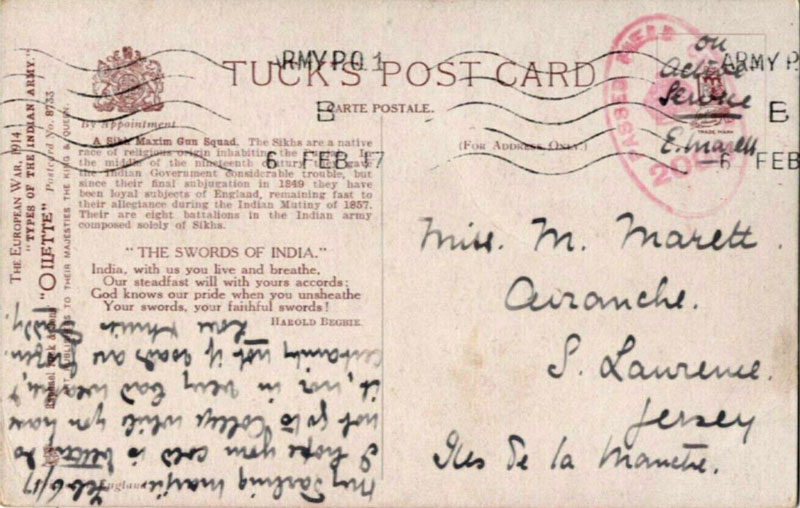 ARMY P.O. 1
B
6 FEB 17
ARMY P
B
6 FEB
PASSED FIELD
on
Active
Service
E. Marett
TRADE MARK
TUCK'S POST CARD
CARTE POSTALE.
By Appointment
(FOR ADDRESS ONLY.)
A Sikh Maxim Gun Squad. The Sikhs are a native
race of religious origin inhabiting the In
the middle of the nineteenth century gave
the Indian Government considerable trouble, but
since their final subjugation in 1849 they have
been loyal subjects of England, remaining fast to
their allegiance during the Indian Mutiny of 1857.
Their are eight battalions in the Indian army
composed solely of Sikhs.
"THE SWORDS OF INDIA."
India, with us you live and breathe,
Our steadfast will with yours accords;
God knows our pride when you unsheathe
Your swords, your faithful swords!
HAROLD BEGBIE.
THE EUROPEAN WAR, 1914
"TYPES OF THE INDIAN ARMY."
"OILETTE" Postcard No. 8733
TO THEIR MAJESTIES THE KING & QUEEN.
England
Feb 6/17
My Darling Marjie
I hope your cold is better do
not go to College while you have
it, nor in very bad weather,
certainly not if roads are
Love
Daddy.
Miss. M. Marett.
Avranche.
S. Lawrence.
Jersey
Iles de la Manche.